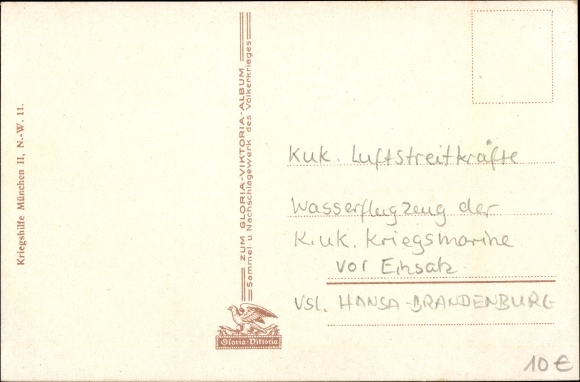 Kriegshilfe München II, N.-W. 11.
ZUM GLORIA-VIKTORIA-ALBUM
Sammel u. Nachschlagewerk des Völkerkrieges
Gloria-Viktoria
Kuk. Luftstreitkräfte
Wasserflugzeug der
K.uk. Kriegsmarine
vor Einsatz
vsl. HANSA-BRANDENBURG
10€